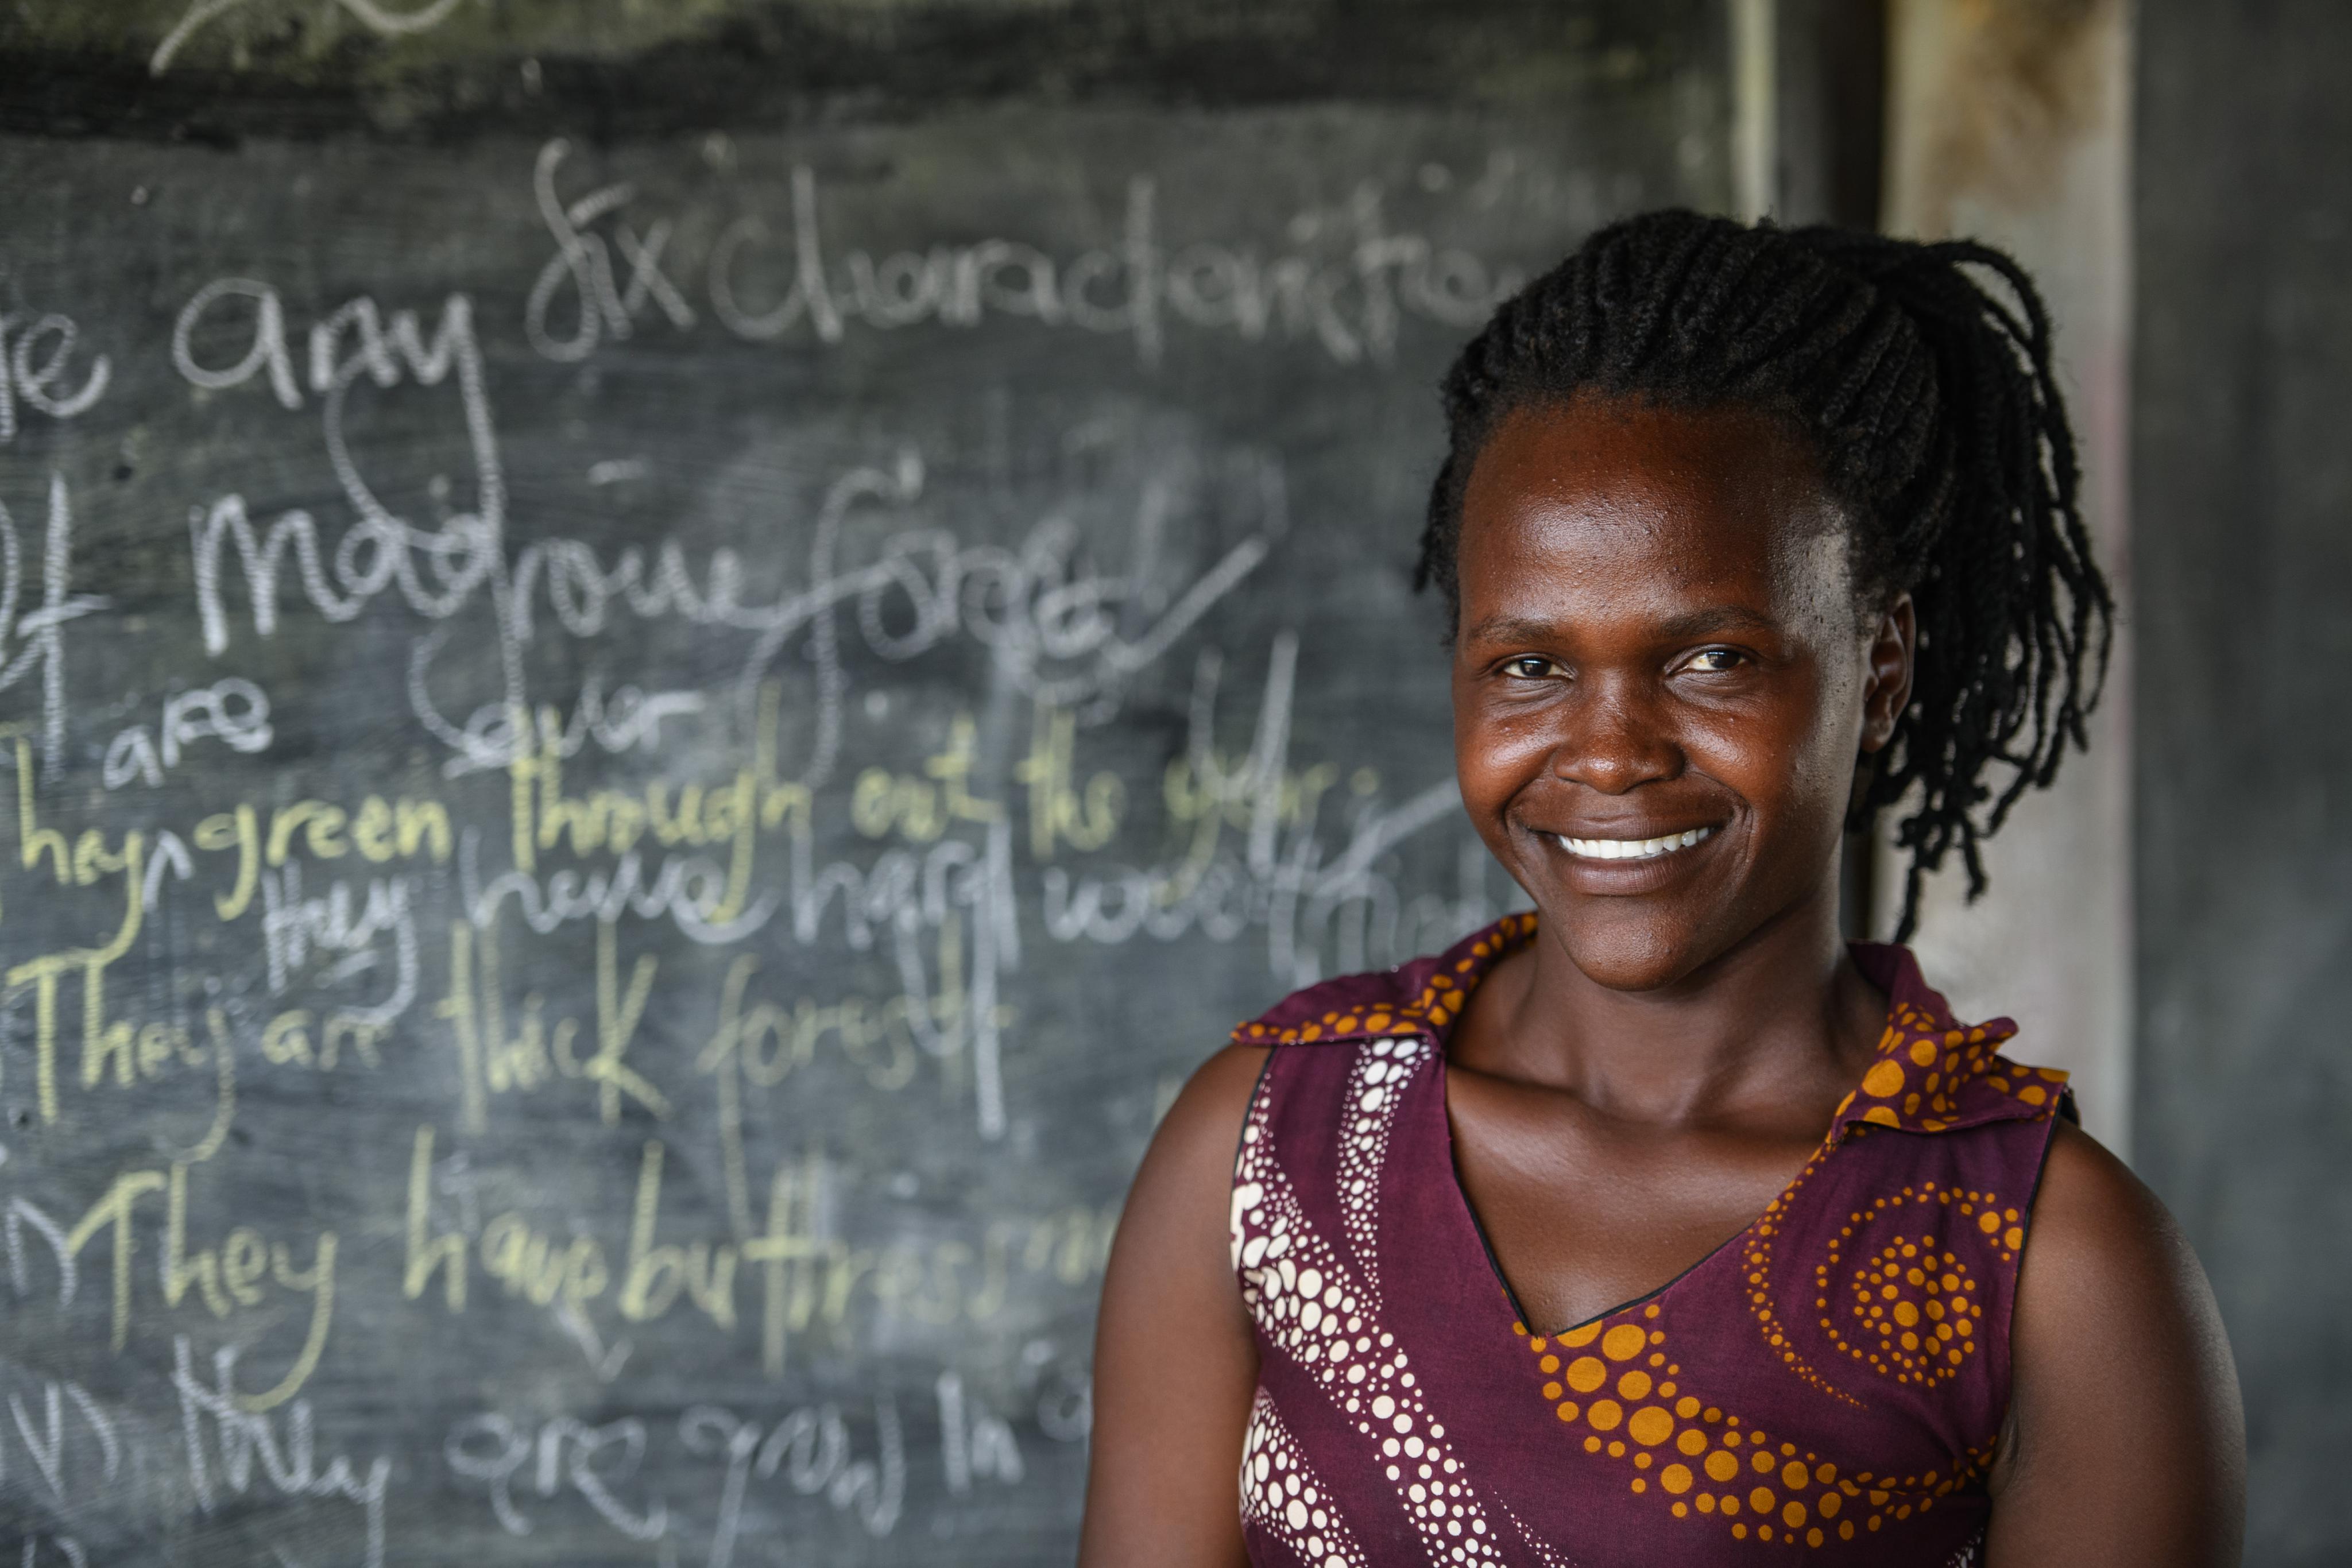 any six characteristics
of mangrove forest
are ever
They green through out the year.
They have hard wood
They are thick forest
They have buttress
They are grow in